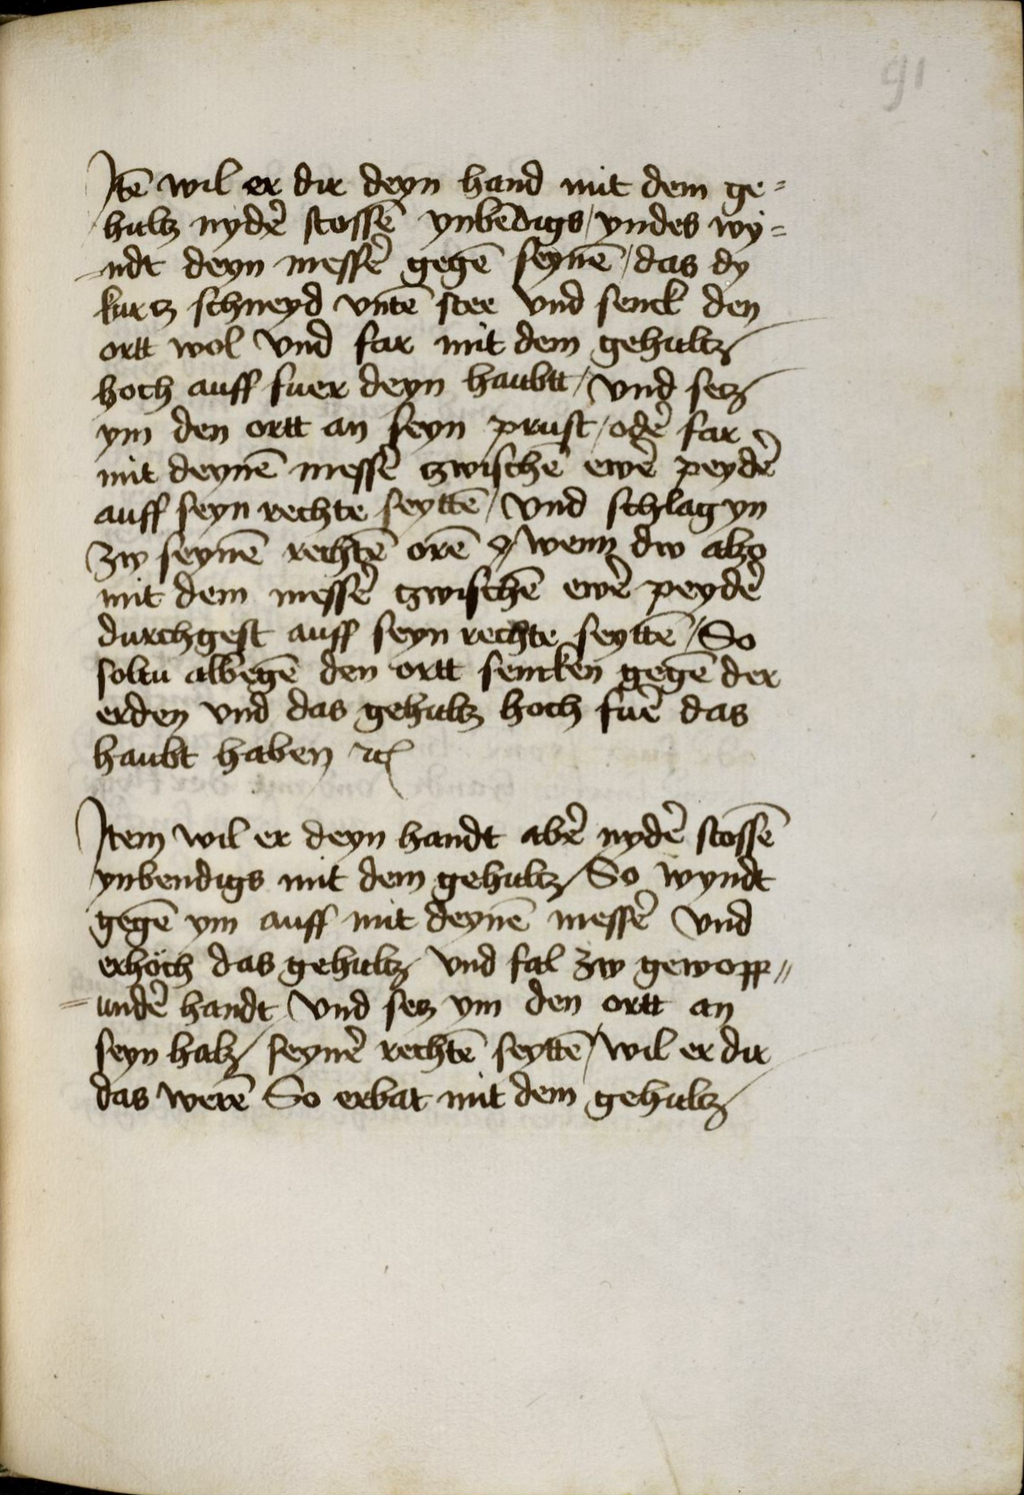 91
Itē wil er dir deyn hand mit dem ge=
hultz nydē stossē ynbēdigs / yndes wy=
ndt deyn messē gegē seynē / das dy
kurtz schneyd vntē stee vnd senck den
ortt wol vnd far mit dem gehultz
hoch auff fuer deyn haubtt / vnd setz
ym den ortt an seyn prust / odē far
mit deynē messē zwischē ewē peydē
auff seyn rechte seyttē / vnd schlag yn
zw seynē rechtē orē wenn dw also
mit dem messē zwischē ewē peydē
durchgest auff seyn rechte seyttē / So
soltu albegē den ortt sencken gegē der
erden vnd das gehultz hoch fuē das
haubt haben ꝛc
Item wil er deyn handt abē nydē stossē
ynbendigs mit dem gehultz / So wyndt
gegē ym auff mit deynē messē vnd
erhöch das gehultz vnd fal zw gewopp=
=undē handt vnd setz ym den ortt an
seyn halz / seynē rechtē seyttē / wil er dir
das werē So erbat mit dem gehultz